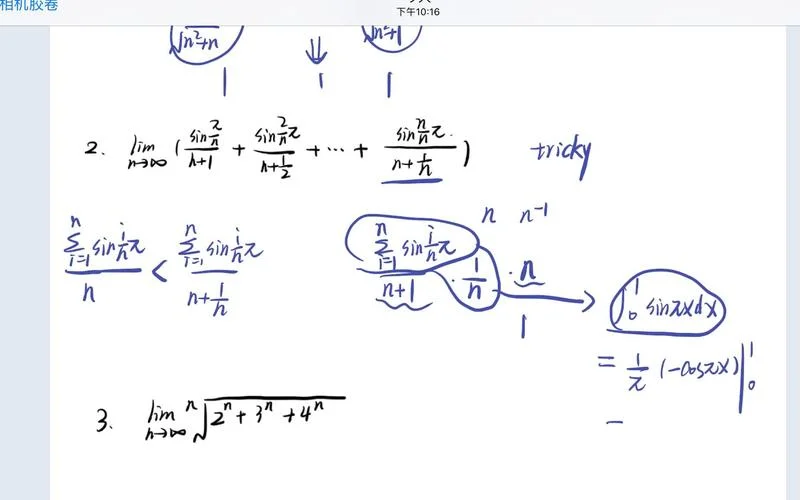 相机胶卷
下午10:16
√n²+n √n²+1
1 1 1
2. lim n→∞ ( sin π/n / n+1 + sin 2/n π / n+1/2 + ··· + sin n/n π / n+1/n ) tricky
n n⁻¹
∑ i=1 n sin i/n π / n < ∑ i=1 n sin i/n π / n+1/n
∑ i=1 n sin i/n π / n+1 · 1/n · n / 1 → ∫₀¹ sinπxdx
= 1/π (-cosπx) |₀¹
=
3. lim n→∞ ⁿ√2ⁿ+3ⁿ+4ⁿ